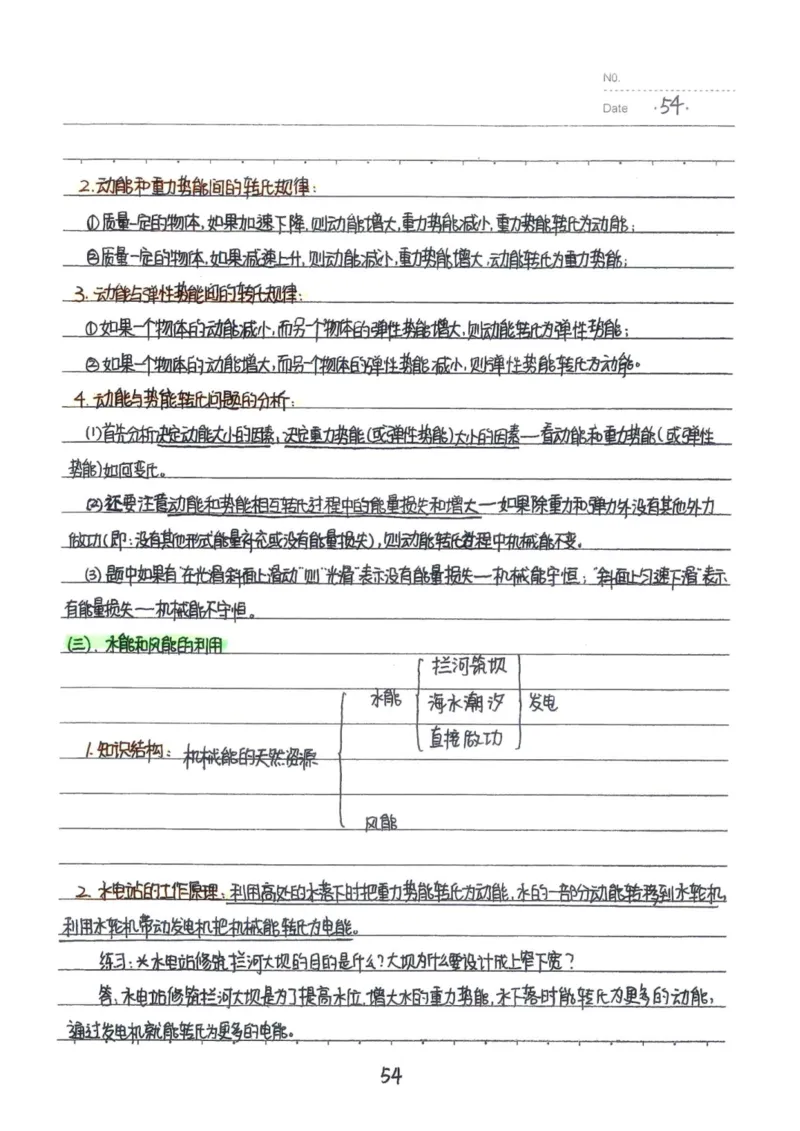 NO.
Date ·54·
2.动能和重力势能间的转化规律:
①质量一定的物体,如果加速下降,则动能增大,重力势能减小,重力势能转化为动能;
②质量一定的物体,如果减速上升,则动能减小,重力势能增大,动能转化为重力势能;
3.动能与弹性势能间的转化规律:
①如果一个物体的动能减小,而另一个物体的弹性势能增大,则动能转化为弹性势能;
②如果一个物体的动能增大,而另一个物体的弹性势能减小,则弹性势能转化为动能。
4.动能与势能转化问题的分析:
(1)首先分析决定动能大小的因素,决定重力势能(或弹性势能)大小的因素—看动能和重力势能(或弹性
势能)如何变化。
(2)还要注意动能和势能相互转化过程中的能量损失和增大—如果除重力和弹力外没有其他外力
做功(即:没有其他形式能量补充或没有能量损失),则动能转化过程中机械能不变。
(3)题中如果有“在光滑斜面上滑动”则“光滑”表示没有能量损失—机械能守恒;“斜面上匀速下滑”表示
有能量损失—机械能不守恒。
(三).水能和风能的利用
1.知识结构: 机械能的天然资源
水能
拦河筑坝
海水潮汐
直接做功
发电
风能
2.水电站的工作原理:利用高处的水落下时把重力势能转化为动能,水的一部分动能转移到水轮机,
利用水轮机带动发电机把机械能转化为电能。
练习:*水电站修筑拦河大坝的目的是什么?大坝为什么要设计成上窄下宽?
答:水电站修筑拦河大坝是为了提高水位,增大水的重力势能,水下落时能转化为更多的动能,
通过发电机就能转化为更多的电能。
54